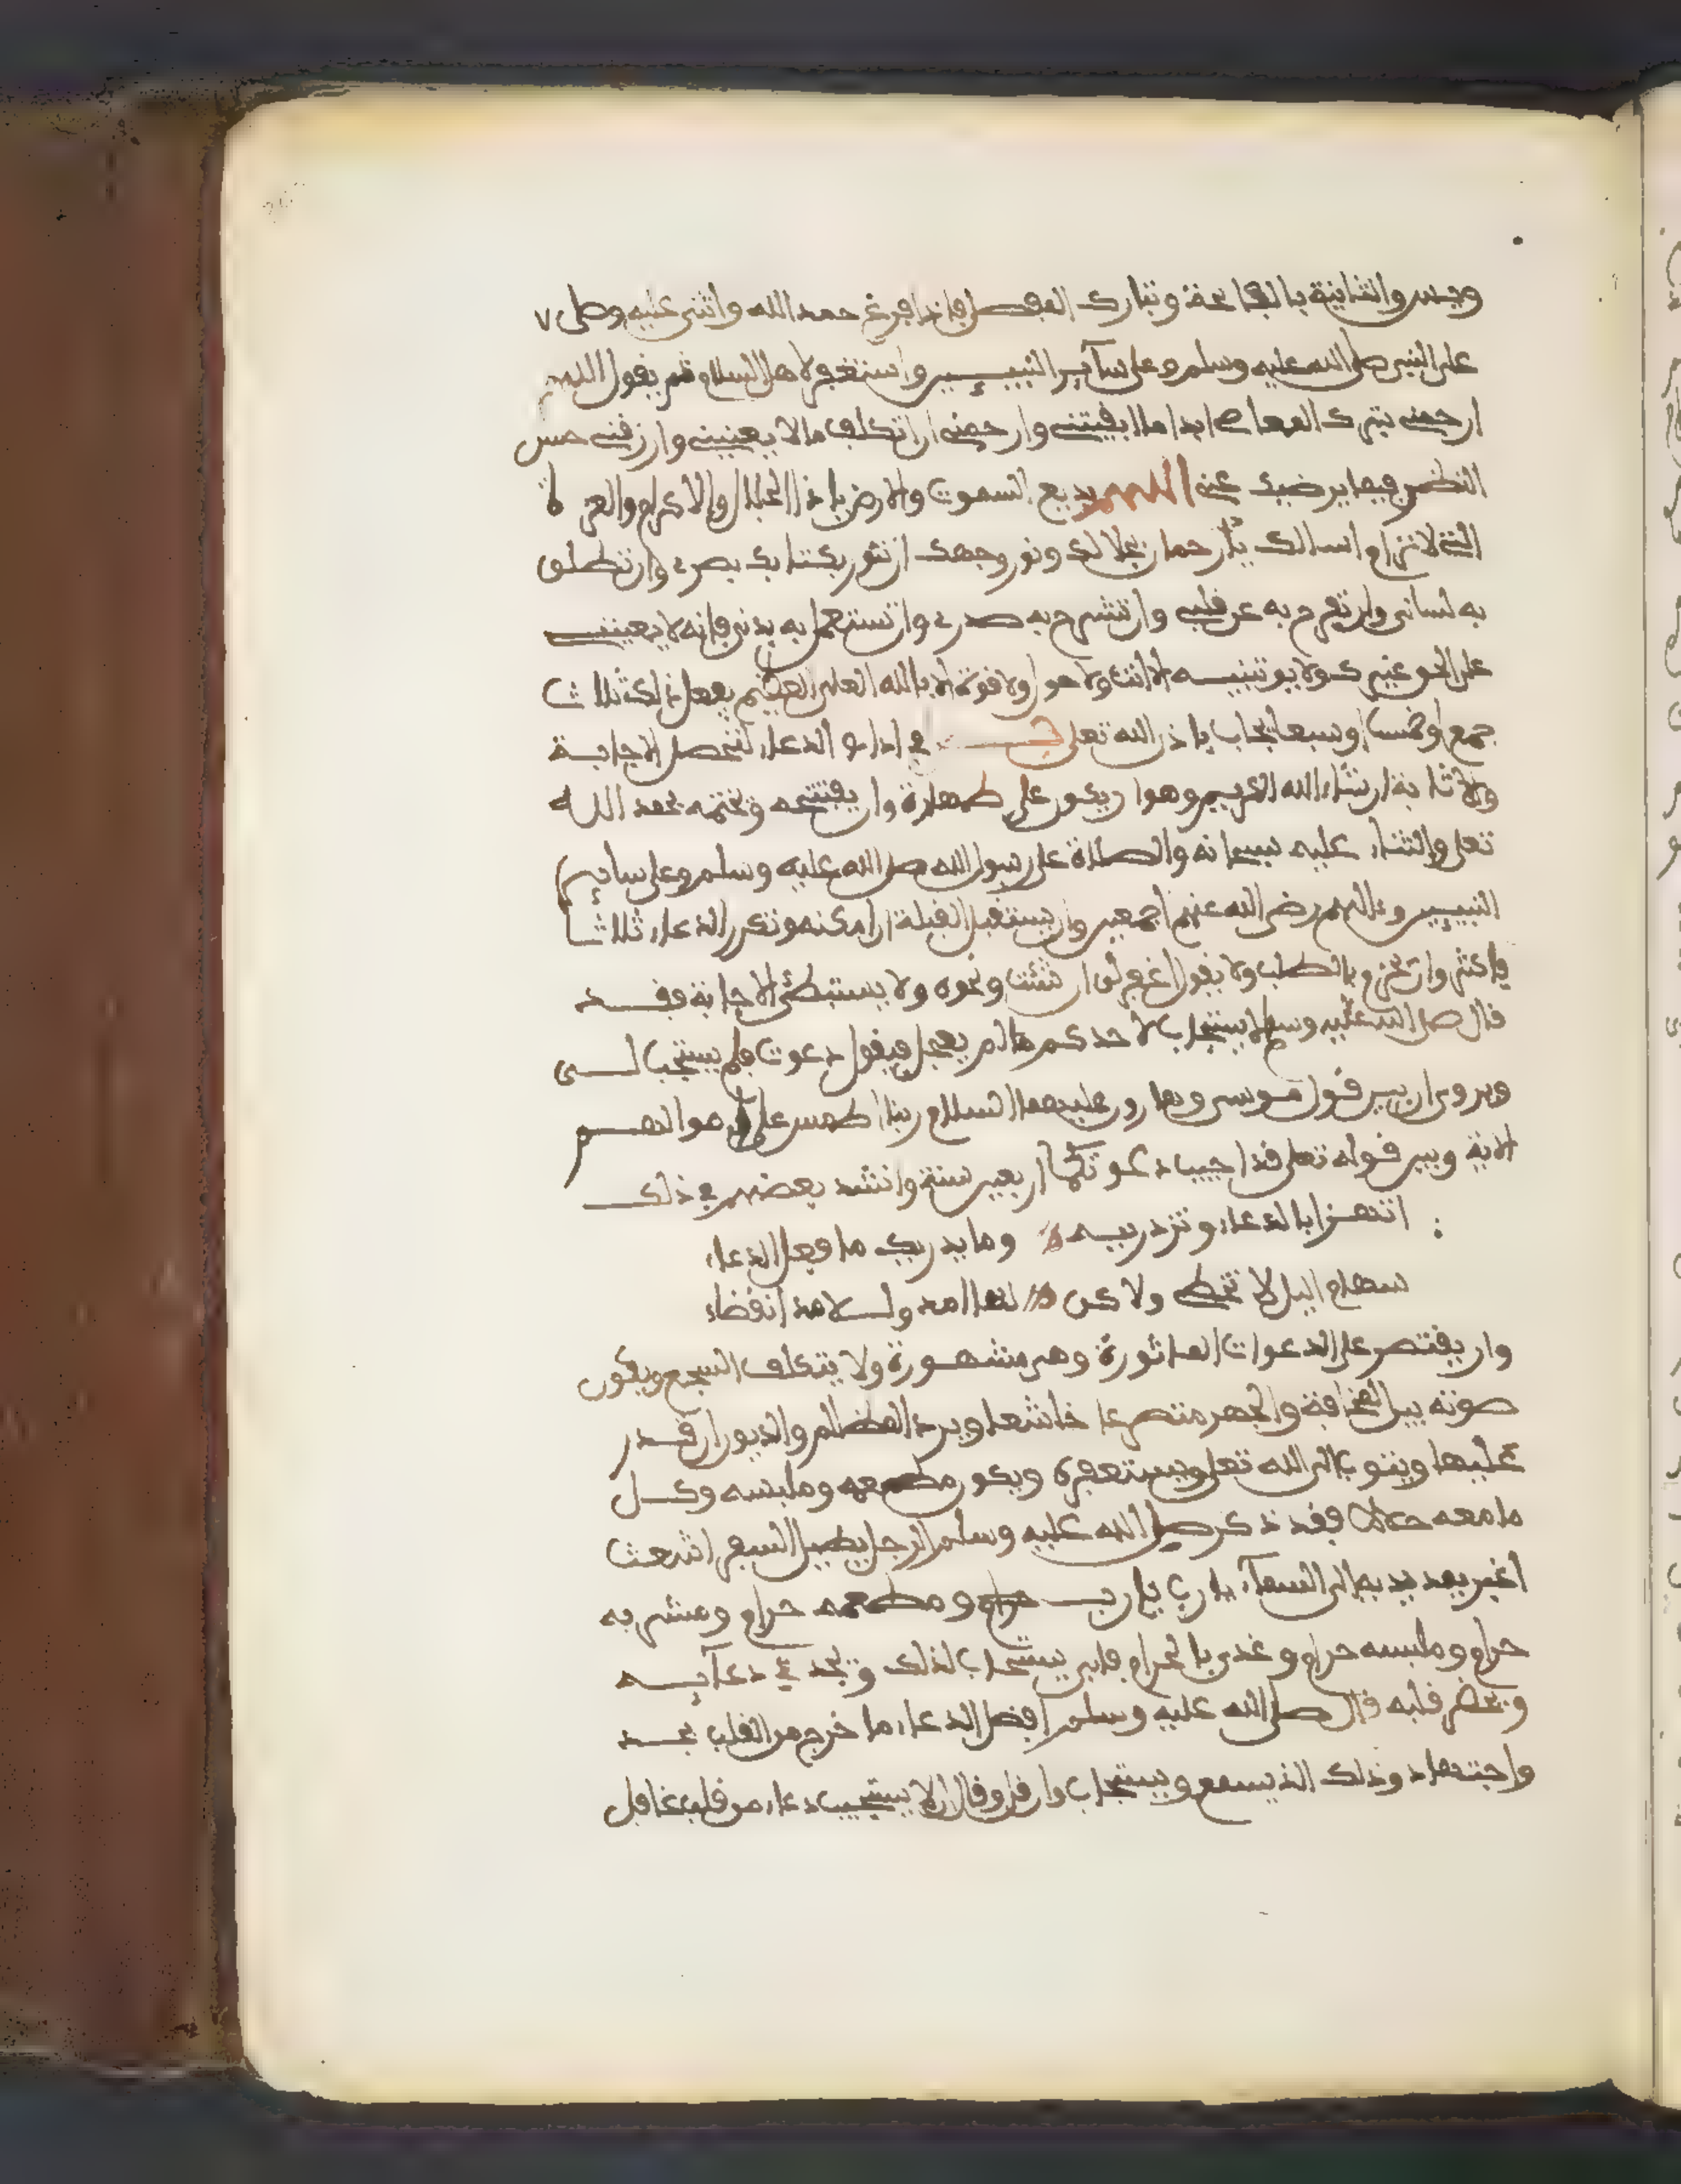 ويس والثانية بالفاتحة وتبارك المفصل فإذا فرغ حمد الله واثنى عليه وصلى
على النبي صلى الله عليه وسلم وعلى سآئر النبيـيـن واستغفر لاهل السلام ثم يقول اللهم
ارحمني بترك المعاصي ابدا ما ابقيتني وارحمني ان اتكلف ما لا يعنيني وارزقني حسن
النظر فيما يرضيك عني اللهم بديع السموت والارض يا ذا الجلال والاكرام والعزة
التي لا ترام اسالك يا رحمان بجلالك ونور وجهك ان تنور بكتابك بصري وان تطلق
به لساني وان تفرج به عن قلبي وان تشرح به صدري وان تستعمل به بدني فإنه لا يعينني
على الحق غيرك ولا يوتنيـه الا انت ولا حول ولا قوة الا بالله العلي العظيم يفعل ذلك ثلاث
جمع او خمسا او سبعا يجاب باذن الله تعلى في اداب الدعاء لتحصل الاجابـة
والاثابة ان شاء الله الكريم وهو ان يكون على طهارة وان يفتتحه ويختمه بحمد اللـه
تعلى والثناء عليه سبحانه والصلاة على رسول الله صلى الله عليه وسلم وعلى سآئر
النبيـين وءالهم رضي الله عنهم اجمعين وان يستقبل القبلة ان امكنه وتكرر الدعاء ثلاثـا
فاكثر وان يحزم بالطلب ولا يقول اغفر لي ان شئت ونحوه ولا يستبطئ الاجابة فقـد
قال صلى الله عليه وسلم يستجاب لاحدكم ما لم يعجل فيقول دعوت فلم يستجب لـي
ويروى ان بين قول موسى وهارون عليهما السلام ربنا اطمس على اموالهـم
الاية وبين قوله تعلى قد اجيبت دعوتكما اربعين سنة وانشد بعضهم في ذلك
اتهـزا بالدعاء وتزدريـه وما يدريك ما فعل الدعاء
سهام اليل لا تخطي ولاكن لها امد ولـلامد انقضاء
وان يقتصر على الدعوات الماثورة وهي مشهـورة ولا يتكلف السجع ويكون
صوته بين المخافتة والجهر متضرعا خاشعا ويرد المظالم والديون ان قـدر
عليها ويتوب الى الله تعلى ويستغفره ويكون مطعمه وملبسه وكـل
ما معه حلالا فقد ذكر صلى الله عليه وسلم الرجل يطيل السفر اشعث
اغبر يمد يديه الى السماء يا رب يا رب ومطعمه حرام ومشربه
حرام وملبسه حرام وغذي بالحرام فاين يستجاب لذلك ويجد في دعآئـه
ويحضر قلبه قال صلى الله عليه وسلم افضل الدعاء ما خرج من القلب بجـد
واجتهاد وذلك الذي يسمع ويستجاب وان قل وقال ان الله لا يستجيب دعاء من قلب غافل